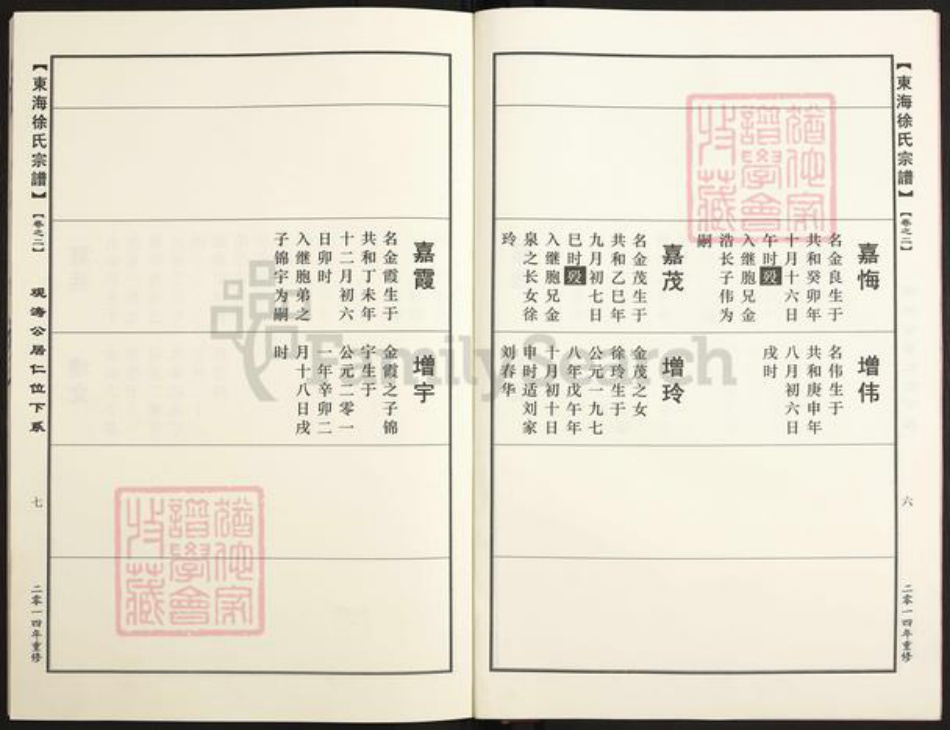 【東海徐氏宗譜】【卷之二】
六
二零一四年重修
嘉悔
名金良生于
共和癸卯年
十月十六日
午时殁
入继胞兄金
浩长子伟为
嗣
嘉茂
名金茂生于
共和乙巳年
九月初七日
巳时殁
入继胞兄金
泉之长女徐
玲
增伟
名伟生于
共和庚申年
八月初六日
戌时
增玲
金茂之女
徐玲生于
公元一九七
八年戊午年
十月初十日
申时适刘家
刘春华
嘉霞
名金霞生于
共和丁未年
十二月初六
日卯时
入继胞弟之
子锦宇为嗣
增宇
金霞之子锦
宇生于
公元二零一
一年辛卯二
月十八日戌
时
【東海徐氏宗譜】【卷之二】
观涛公居仁位下系
七
二零一四年重修
譜學會
收藏
譜學會
收藏
FamilySearch